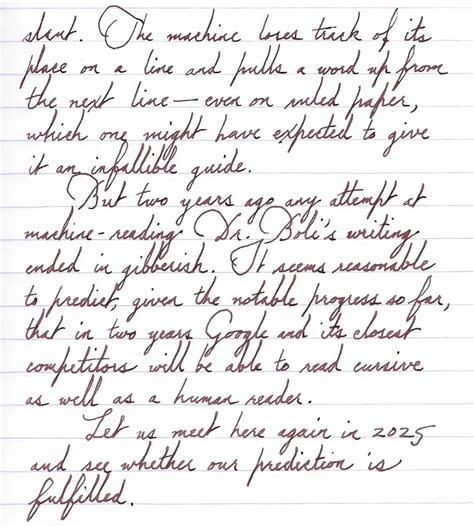 slant. The machine loses track of its
place on a line and pulls a word up from
the next line—even on ruled paper,
which one might have expected to give
it an infallible guide.
But two years ago any attempt at
machine-reading Dr. Boli's writing
ended in gibberish. It seems reasonable
to predict, given the notable progress so far,
that in two years Google and its closest
competitors will be able to read cursive
as well as a human reader.
Let us meet here again in 2025
and see whether our prediction is
fulfilled.